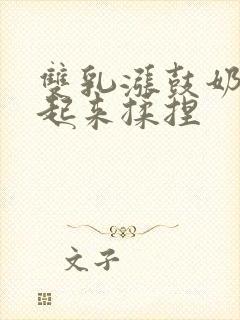 雙乳漲鼓奶
起来揉捏
文子